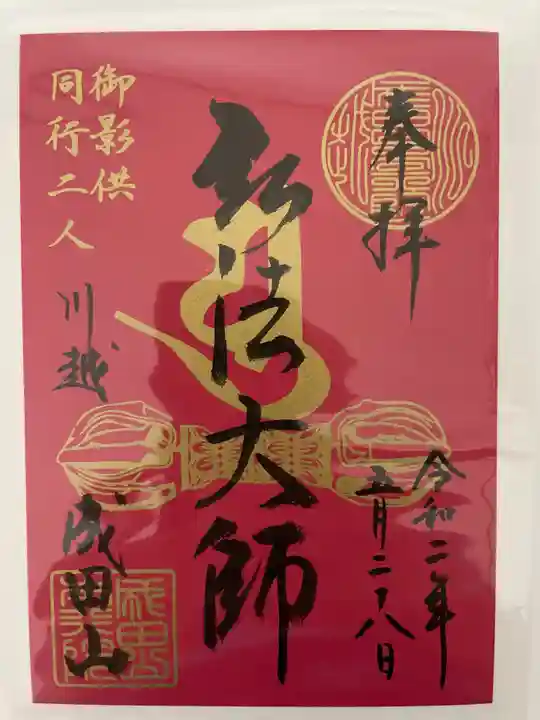 奉拝
令和二年
五月二八日
弘法大師
御影供
同行二人
川越
成田山